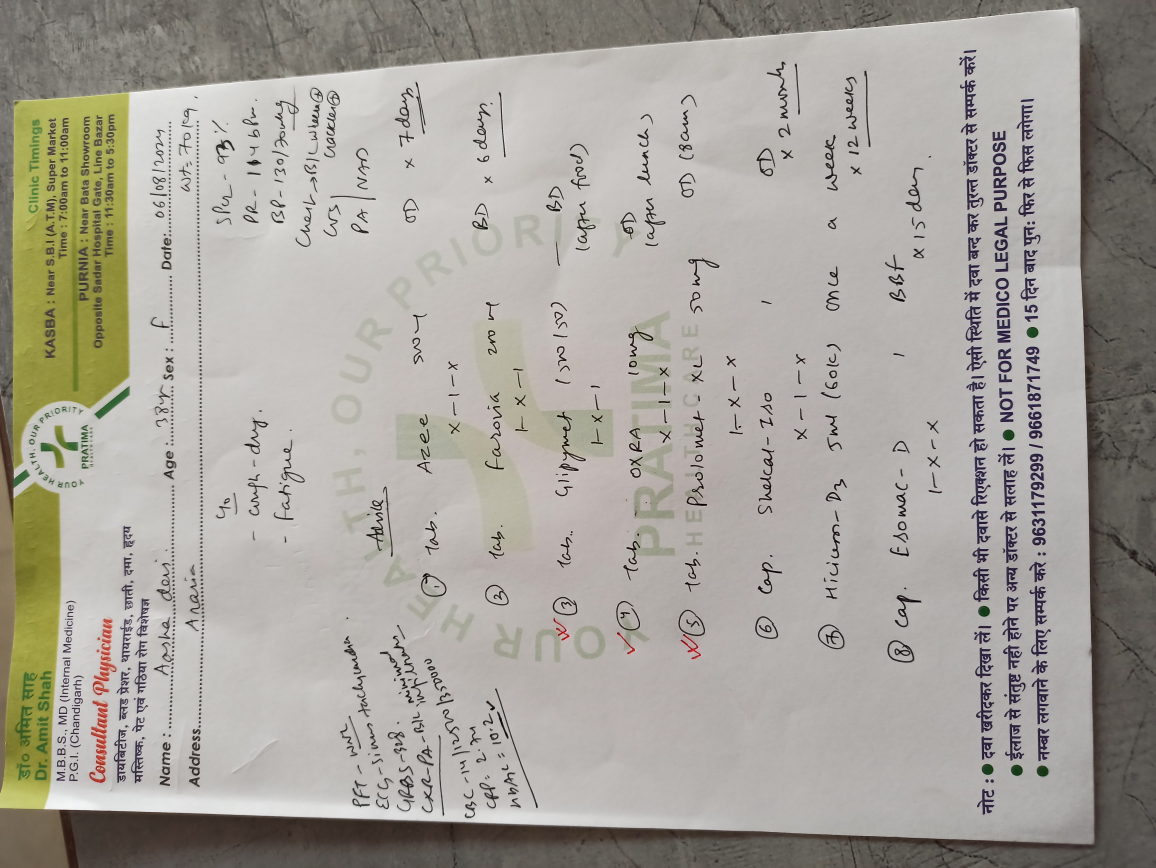 डॉ० अमित साह
Dr. Amit Shah
M.B.B.S., MD (Internal Medicine)
P.G.I. (Chandigarh)
Consultant Physician
डायबिटीज, ब्लड प्रेशर, थायराईड, छाती, दमा, हृदय
मस्तिष्क, पेट एवं गठिया रोग विशेषज्ञ
YOUR HEALTH, OUR PRIORITY
PRATIMA
HEALTHCARE
Clinic Timings
KASBA : Near S.B.I (A.T.M), Super Market
Time : 7:00am to 11:00am
PURNIA : Near Bata Showroom
Opposite Sadar Hospital Gate, Line Bazar
Time : 11:30am to 5:30pm
Name : Aasha devi Age : 38yr Sex : F Date: 06/08/2024
Address. Araria wt= 70 kg.
c/o
- cough - dry.
- Fatigue.
SPO2 - 93%
PR - 114 bpm.
BP - 130/70mmHg
Chest → B/L wheeze ⊕
crackles ⊕
CVS
PA | NAD
PFT -
ECG - Sinus tachycardia.
GRBS - 328.
CXR - PA - B/L minimal
CBC - 14/12500/350000
CRP = 2.74
HbA1c = 10.2
Advice
① Tab. Azee 500mg OD x 7 days
x-1-x
② Tab. Farovia 200mg BD x 6 days
1-x-1
③ Tab. Glipymet (500/50) — BD
1-x-1 (after food)
④ Tab. OXRA 10mg OD
x-1-x (after lunch)
⑤ Tab. Prolomet-XL 50mg OD (8am)
1-x-x
⑥ Cap. Shelcal-ISO 1 OD
x-1-x x 2 months
⑦ Hicium-D3 5ml (60K) once a week
x 12 weeks
⑧ Cap. Esomac-D 1 BBF
1-x-x x 15 days.
YOUR HEALTH, OUR PRIORITY
PRATIMA
HEALTHCARE
नोट : ● दवा खरीदकर दिखा लें। ● किसी भी दवासे रिएक्शन हो सकता है। ऐसी स्थिति में दवा बन्द कर तुरन्त डॉक्टर से सम्पर्क करें।
● ईलाज से संतुष्ट नही होने पर अन्य डॉक्टर से सलाह लें। ● NOT FOR MEDICO LEGAL PURPOSE
● नम्बर लगवाने के लिए सम्पर्क करे : 9631179299 / 9661871749 ● 15 दिन बाद पुन: फिर से फिस लगेगा।